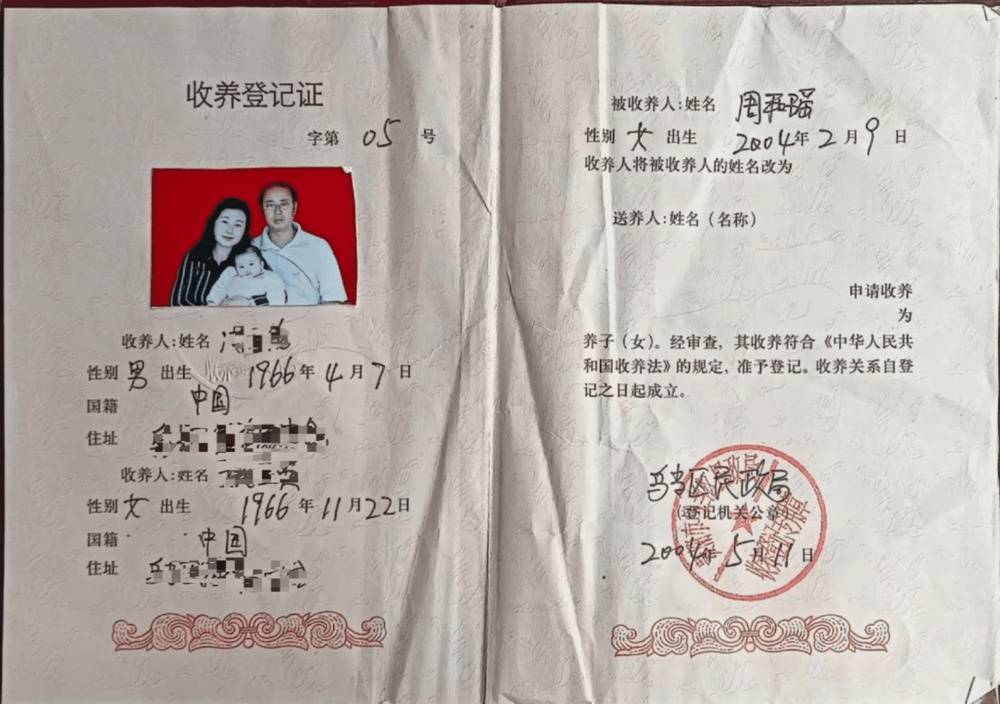 收养登记证
字第 05 号
收养人:姓名
性别 男 出生 1966 年 4 月 7 日
国籍 中国
住址
收养人:姓名
性别 女 出生 1966 年 11 月 22 日
国籍 中国
住址
被收养人:姓名 周
性别 女 出生 2004 年 2 月 9 日
收养人将被收养人的姓名改为
送养人:姓名（名称）
申请收养
为
养子（女）。经审查，其收养符合《中华人民共
和国收养法》的规定，准予登记。收养关系自登
记之日起成立。
乌当区民政局
（登记机关公章）
2004 年 5 月 11 日